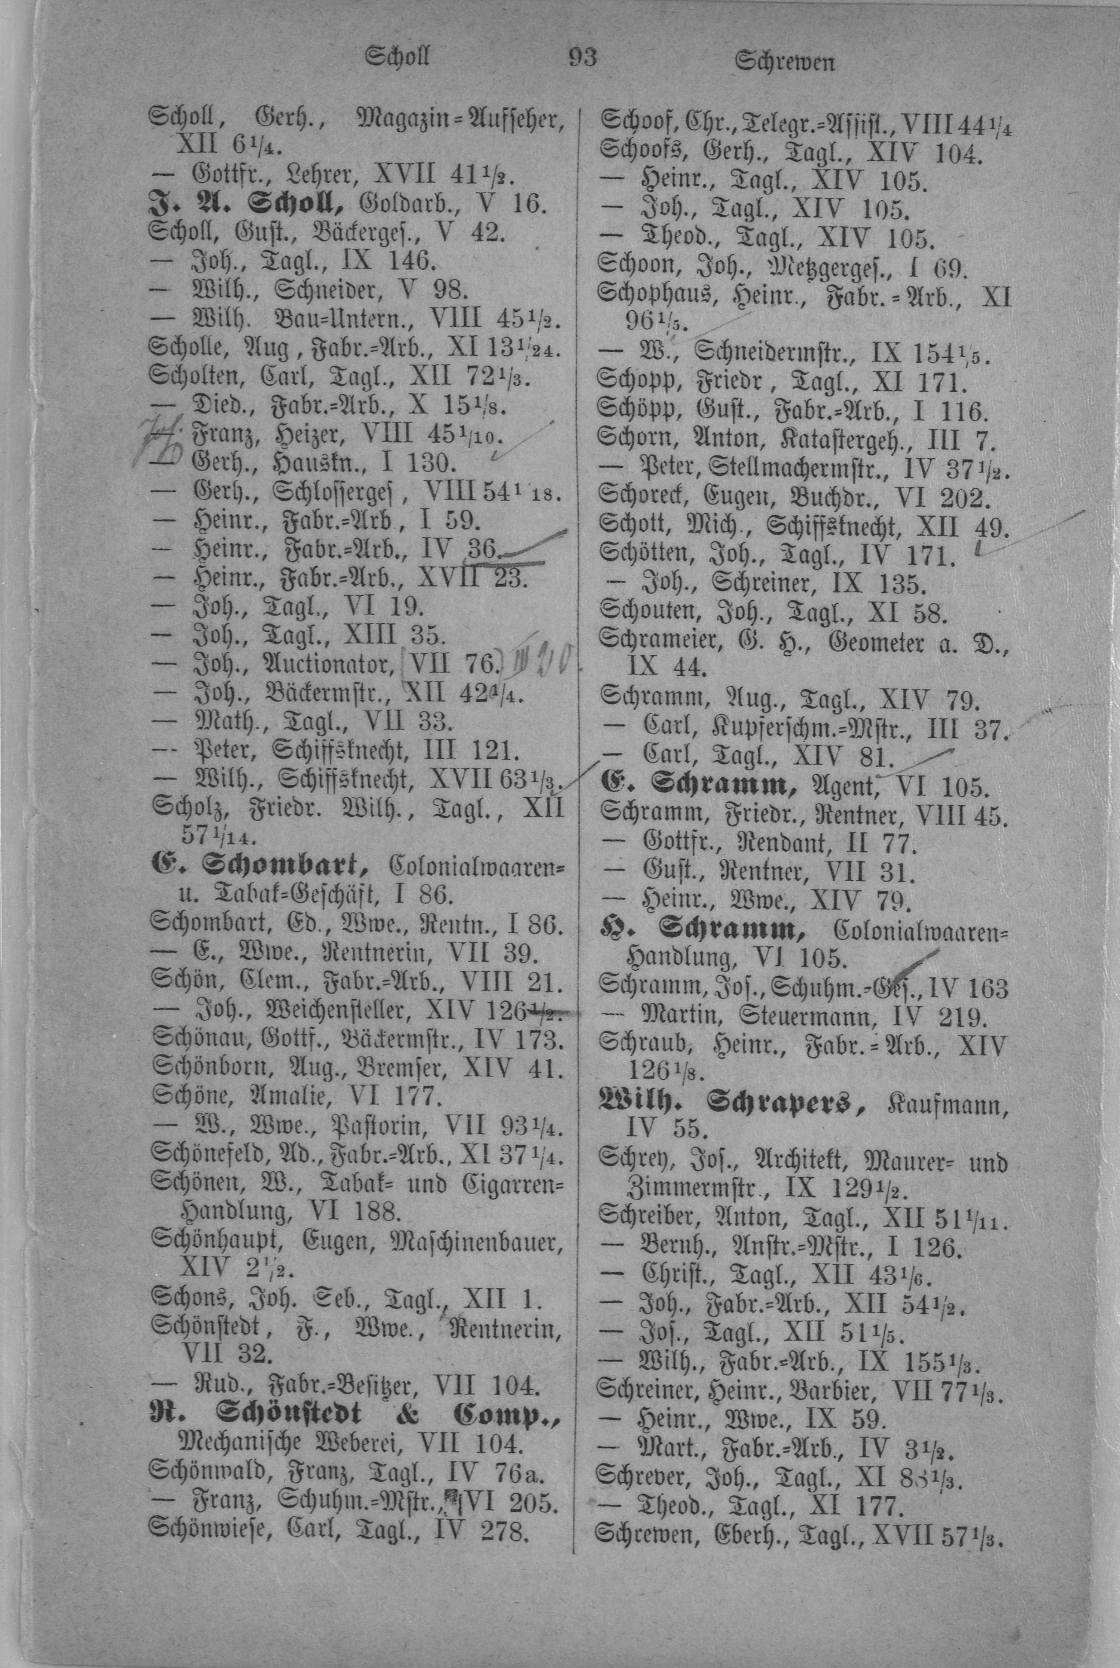 Scholl 93 Schrewen
Scholl, Gerh., Magazin=Aufseher,
XII 6 1/4.
— Gottfr., Lehrer, XVII 41 1/2.
J. A. Scholl, Goldarb., V 16.
Scholl, Gust., Bäckerges., V 42.
— Joh., Tagl., IX 146.
— Wilh., Schneider, V 98.
— Wilh. Bau=Untern., VIII 45 1/2.
Scholle, Aug, Fabr.=Arb., XI 13 1/24.
Scholten, Carl, Tagl., XII 72 1/3.
— Died., Fabr.=Arb., X 15 1/8.
— Franz, Heizer, VIII 45 1/10.
— Gerh., Hauskn., I 130.
— Gerh., Schlosserges, VIII 54 1 18.
— Heinr., Fabr.=Arb, I 59.
— Heinr., Fabr.=Arb., IV 36.
— Heinr., Fabr.=Arb., XVII 23.
— Joh., Tagl., VI 19.
— Joh., Tagl., XIII 35.
— Joh., Auctionator, VII 76. III 20
— Joh., Bäckermstr., XII 42 1/4.
— Math., Tagl., VII 33.
— Peter, Schiffsknecht, III 121.
— Wilh., Schiffsknecht, XVII 63 1/3.
Scholz, Friedr. Wilh., Tagl., XII
57 1/14.
E. Schombart, Colonialwaaren=
u. Tabak=Geschäft, I 86.
Schombart, Ed., Wwe., Rentn., I 86.
— E., Wwe., Rentnerin, VII 39.
Schön, Clem., Fabr.=Arb., VIII 21.
— Joh., Weichensteller, XIV 126 1/2.
Schönau, Gottf., Bäckermstr., IV 173.
Schönborn, Aug., Bremser, XIV 41.
Schöne, Amalie, VI 177.
— W., Wwe., Pastorin, VII 93 1/4.
Schönefeld, Ad., Fabr.=Arb., XI 37 1/4.
Schönen, W., Tabak= und Cigarren=
Handlung, VI 188.
Schönhaupt, Eugen, Maschinenbauer,
XIV 2 1/2.
Schons, Joh. Seb., Tagl., XII 1.
Schönstedt, F., Wwe., Rentnerin,
VII 32.
— Rud., Fabr.=Besitzer, VII 104.
R. Schönstedt & Comp.,
Mechanische Weberei, VII 104.
Schönwald, Franz, Tagl., IV 76a.
— Franz, Schuhm.=Mstr., VI 205.
Schönwiese, Carl, Tagl., IV 278.
Schoof, Chr., Telegr.=Assist., VIII 44 1/4
Schoofs, Gerh., Tagl., XIV 104.
— Heinr., Tagl., XIV 105.
— Joh., Tagl., XIV 105.
— Theod., Tagl., XIV 105.
Schoon, Joh., Metzgerges., I 69.
Schophaus, Heinr., Fabr.=Arb., XI
96 1/5.
— W., Schneidermstr., IX 154 1/5.
Schopp, Friedr, Tagl., XI 171.
Schöpp, Gust., Fabr.=Arb., I 116.
Schorn, Anton, Katastergeh., III 7.
— Peter, Stellmachermstr., IV 37 1/2.
Schoreck, Eugen, Buchdr., VI 202.
Schott, Mich., Schiffsknecht, XII 49.
Schötten, Joh., Tagl., IV 171.
— Joh., Schreiner, IX 135.
Schouten, Joh., Tagl., XI 58.
Schrameier, G. H., Geometer a. D.,
IX 44.
Schramm, Aug., Tagl., XIV 79.
— Carl, Kupferschm.=Mstr., III 37.
— Carl, Tagl., XIV 81.
E. Schramm, Agent, VI 105.
Schramm, Friedr., Rentner, VIII 45.
— Gottfr., Rendant, II 77.
— Gust., Rentner, VII 31.
— Heinr., Wwe., XIV 79.
H. Schramm, Colonialwaaren=
Handlung, VI 105.
Schramm, Jos., Schuhm.=Ges., IV 163
— Martin, Steuermann, IV 219.
Schraub, Heinr., Fabr.=Arb., XIV
126 1/8.
Wilh. Schrapers, Kaufmann,
IV 55.
Schrey, Jos., Architekt, Maurer= und
Zimmermstr., IX 129 1/2.
Schreiber, Anton, Tagl., XII 51 1/11.
— Bernh., Anstr.=Mstr., I 126.
— Christ., Tagl., XII 43 1/6.
— Joh., Fabr.=Arb., XII 54 1/2.
— Jos., Tagl., XII 51 1/5.
— Wilh., Fabr.=Arb., IX 155 1/3.
Schreiner, Heinr., Barbier, VII 77 1/3.
— Heinr., Wwe., IX 59.
— Mart., Fabr.=Arb., IV 3 1/2.
Schrever, Joh., Tagl., XI 88 1/3.
— Theod., Tagl., XI 177.
Schrewen, Eberh., Tagl., XVII 57 1/3.